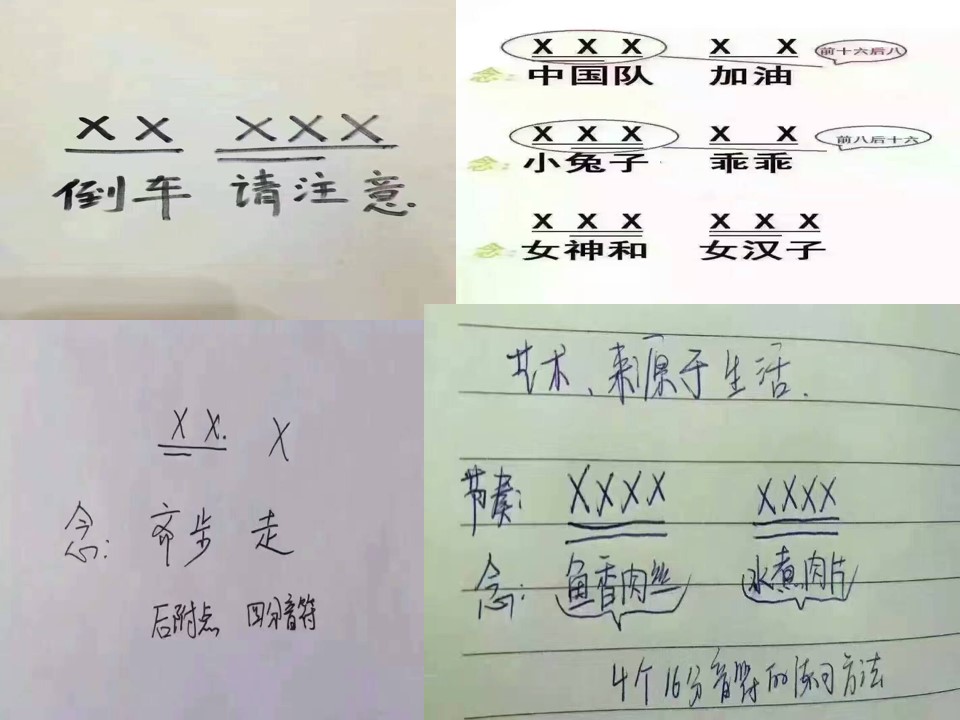 X X X X X
倒车 请注意.
X X X X X 前十六后八
念: 中国队 加油
X X X X X 前八后十六
念: 小兔子 乖乖
X X X X X X
念: 女神和 女汉子
X X. X
念: 齐步 走
后附点 四分音符
艺术、来源于生活.
节奏: XXXX XXXX
念: 鱼香肉丝 水煮肉片
4个16分音符的练习方法